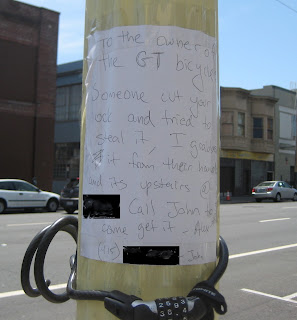 To the owner of
the GT bicycle
Someone cut your
loc and tried to
steal it, I
it from their hands
and its upstairs @
Call John to
come get it -
- John